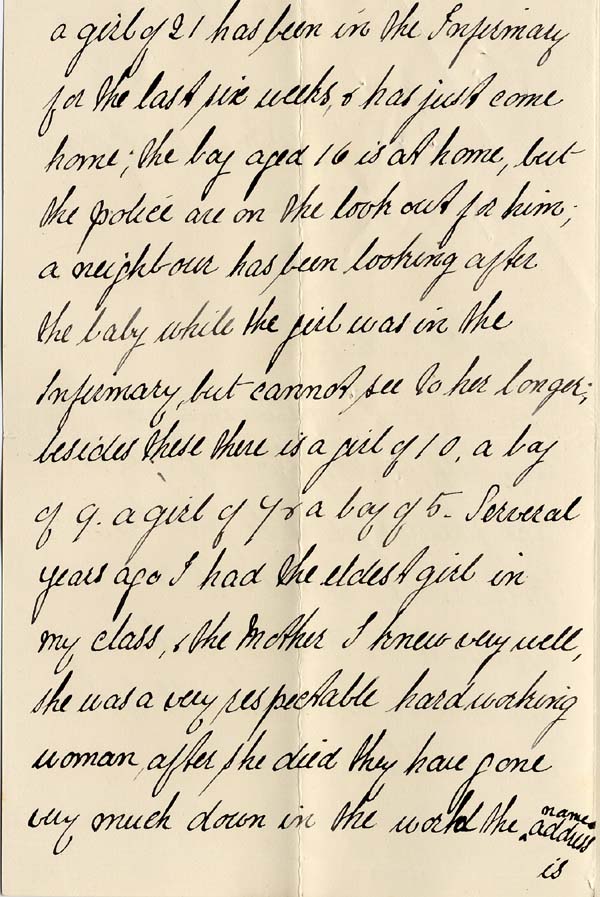 a girl of 21 has been in the Infirmary
for the last six weeks, & has just come
home; the boy aged 16 is at home, but
the police are on the look out for him;
a neighbour has been looking after
the baby while the girl was in the
Infirmary, but cannot see to her longer;
besides these there is a girl of 10, a boy
of 9. a girl of 7 & a boy of 5- Serveral
years ago I had the eldest girl in
my class, & the Mother I knew very well,
she was a very respectable hard working
woman, after she died they have gone
very much down in the world the ^name & address
is